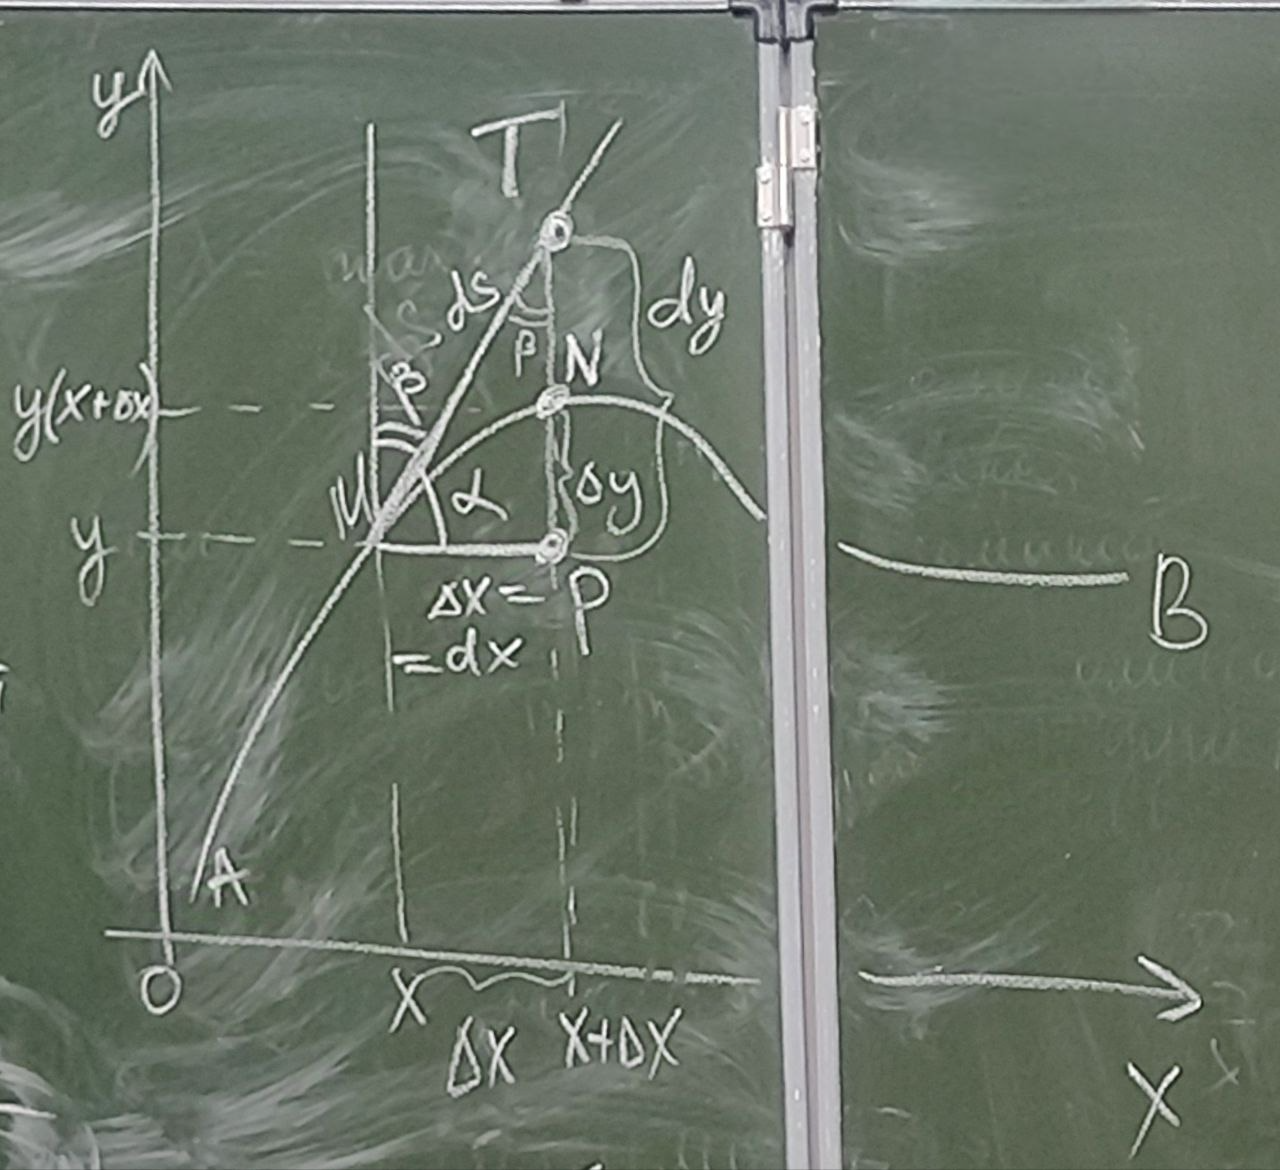 y
T
dS
dy
β
N
β
y(x+Δx)
M
α
Δy
y
Δx=
P
=dx
B
A
O
x
Δx
x+Δx
x